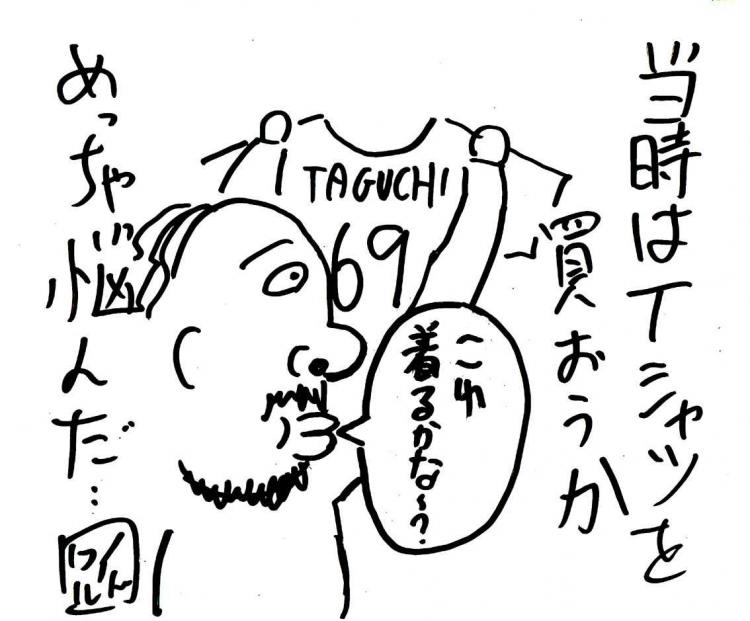 当時はTシャツを
買おうか
TAGUCHI
69
これ
着るかな〜?
めっちゃ悩んだ…